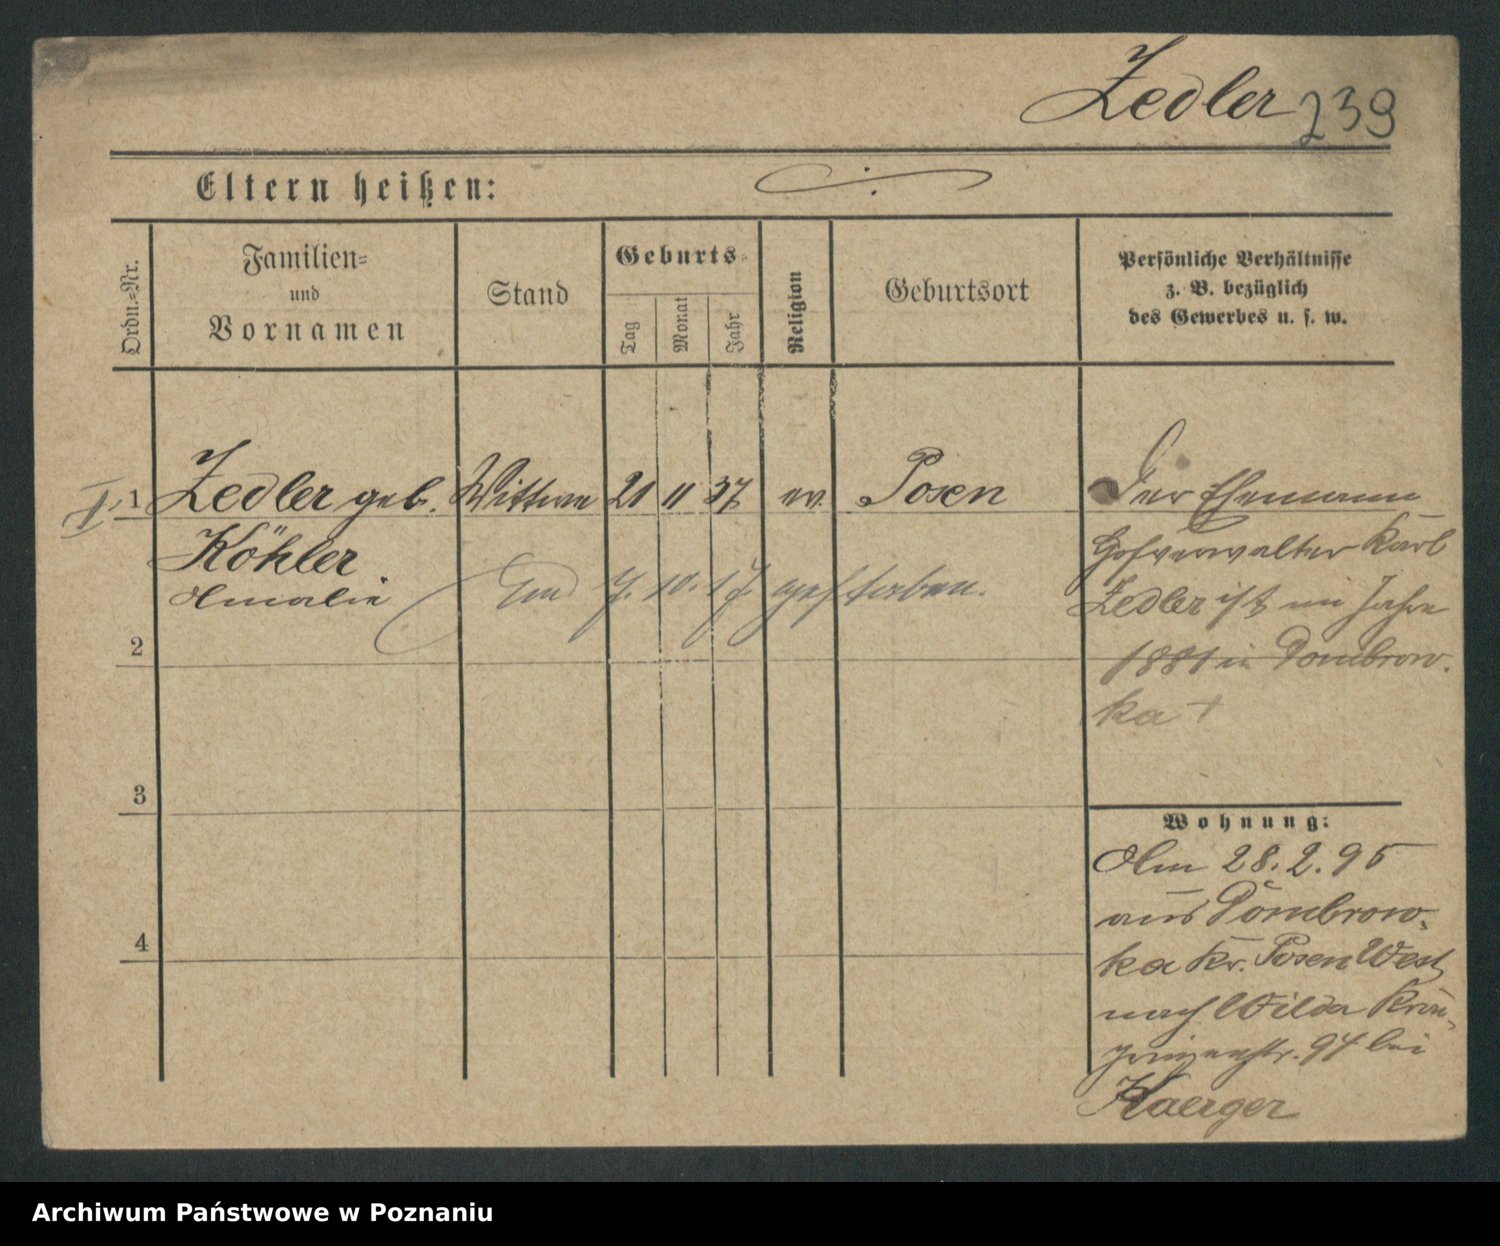 Zedler 239
Eltern heißen:
Ordn.=Nr.
Familien=
und
Vornamen
Stand
Geburts=
Tag
Monat
Jahr
Religion
Geburtsort
Persönliche Verhältnisse
z. B. bezüglich
des Gewerbes u. s. w.
I. 1 Zedler geb. Wittwe 21 11 37 ev. Posen
Köhler
Amalie
Am 7. 10. 17. gestorben.
Der Ehemann
Hofverwalter Karl
Zedler ist im Jahre
1881 in Dombrow-
ka +
2
3
4
Wohnung:
Am 28.2.95
aus Dombrow-
ka Kr. Posen West
nach Wilda Kron-
prinzenstr. 94 bei
Kaerger
Archiwum Państwowe w Poznaniu